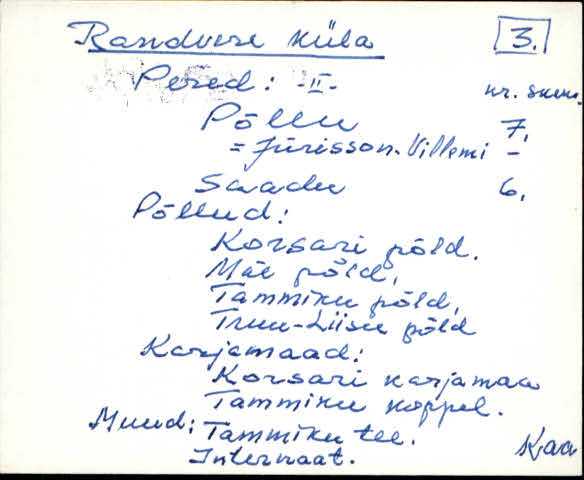 Randvere küla 3.
Pered: -II- nr. suur.
Põllu 7.
= Jürisson. Villemi -
Saadu 6.
Põllud:
Korsari põld.
Mäe põld,
Tammiku põld,
Truu-Liisu põld
Karjamaad:
Korsari karjamaa
Tammiku koppel.
Muud: Tammiku tee.
Internaat.
Kaa